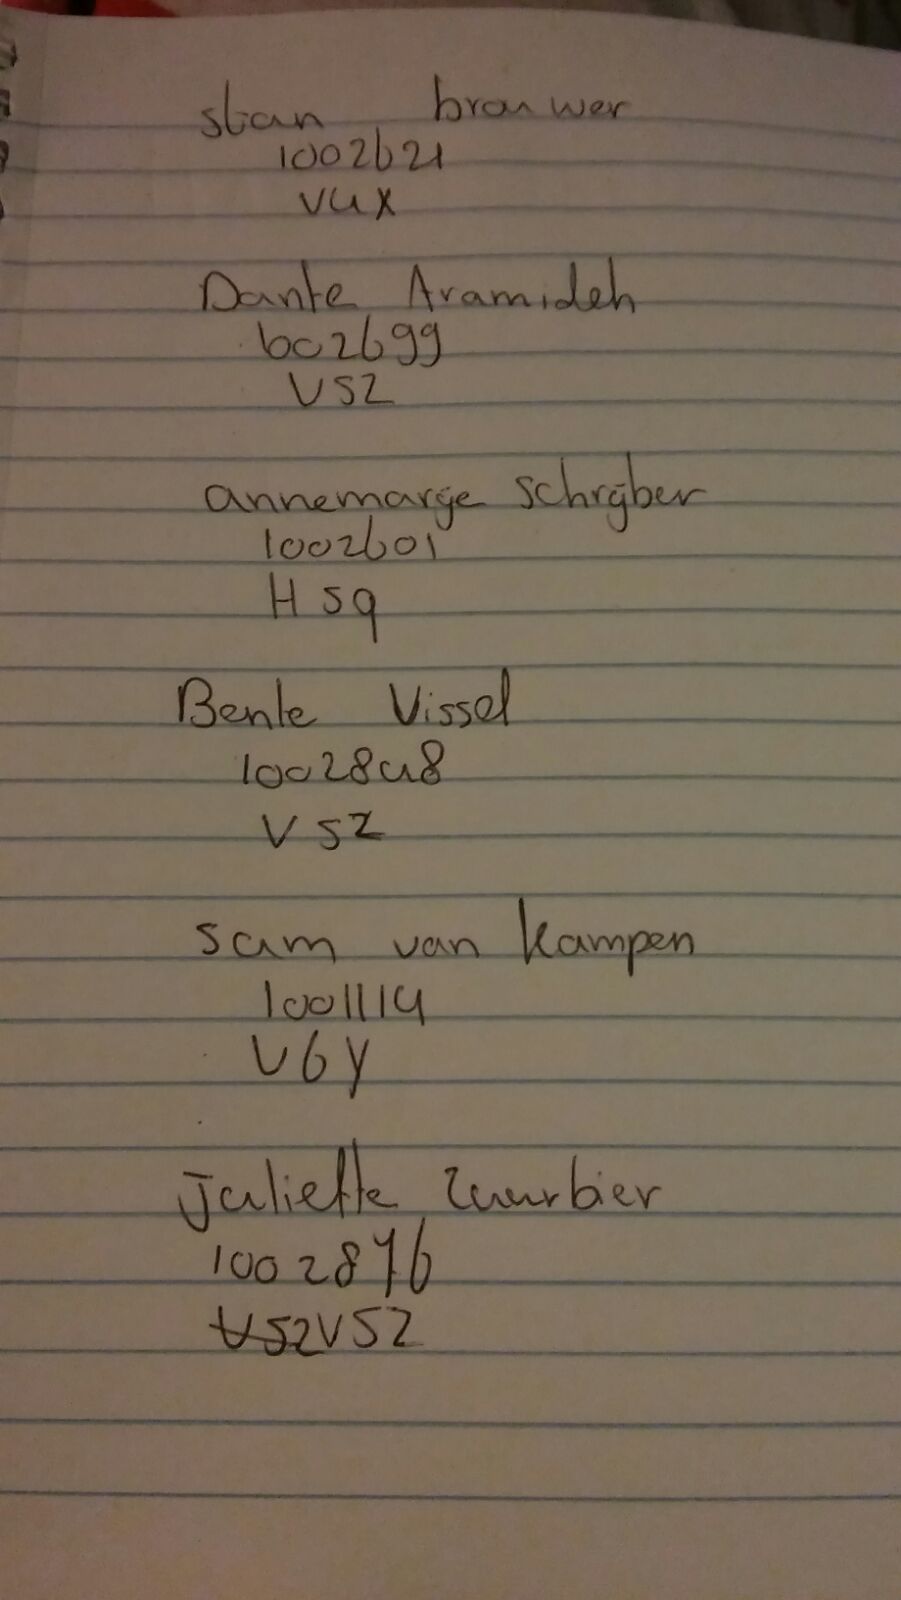 stan brouwer
1002621
V4X
Dante Aramideh
602699
V5Z
annemarije Schrijber
1002601
H5q
Bente Vissel
1002848
V5Z
Sam van Kampen
1001114
V6Y
Juliette Zuurbier
1002876
V5Z V5Z